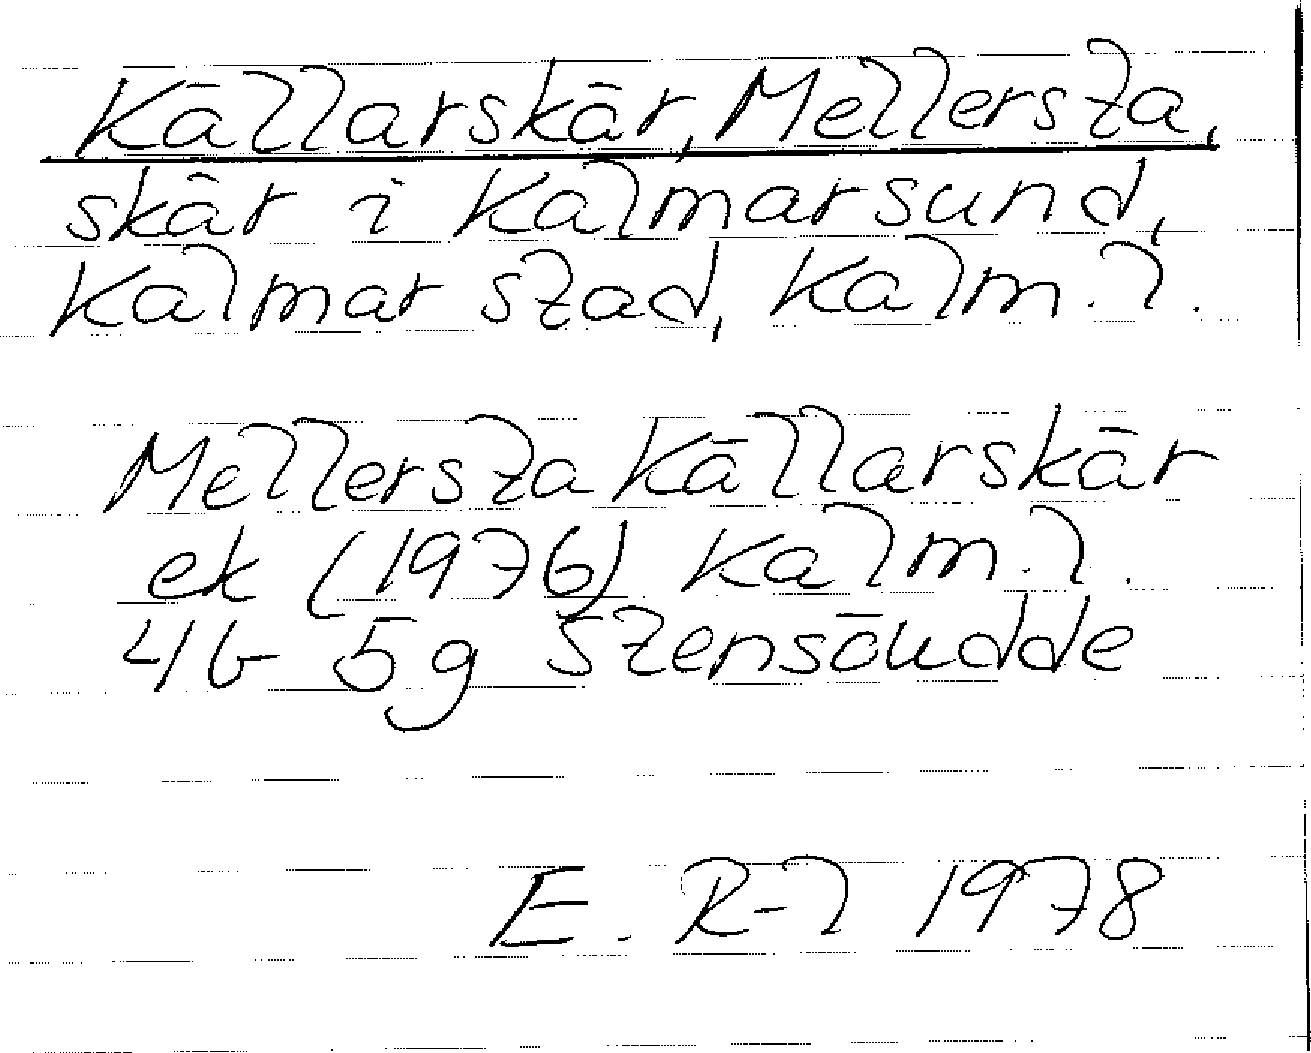 Källarskär, Mellersta,
skär i Kalmarsund,
Kalmar stad, Kalm. l.
Mellersta Källarskär
ek (1976) Kalm. l.
4G 5g Stensöudde
E. R-l 1978